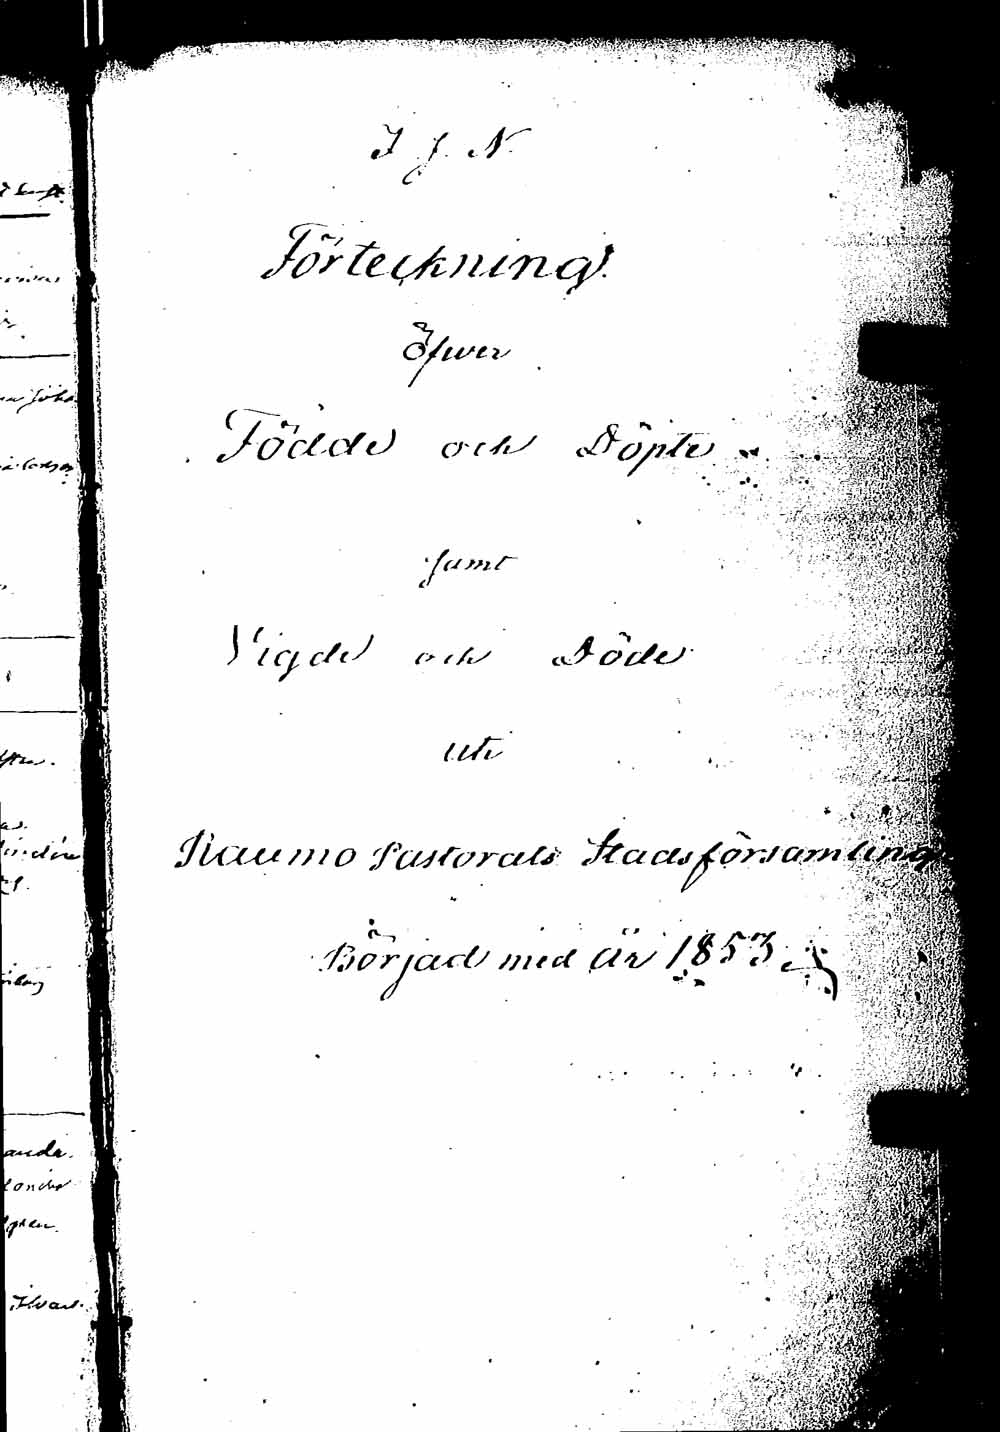 I J. N.
Förteckning
öfwer
Födde och Döpte
samt
Vigde och Döde
uti
Raumo Pastorats Stadsförsamling
Börjad med År 1853